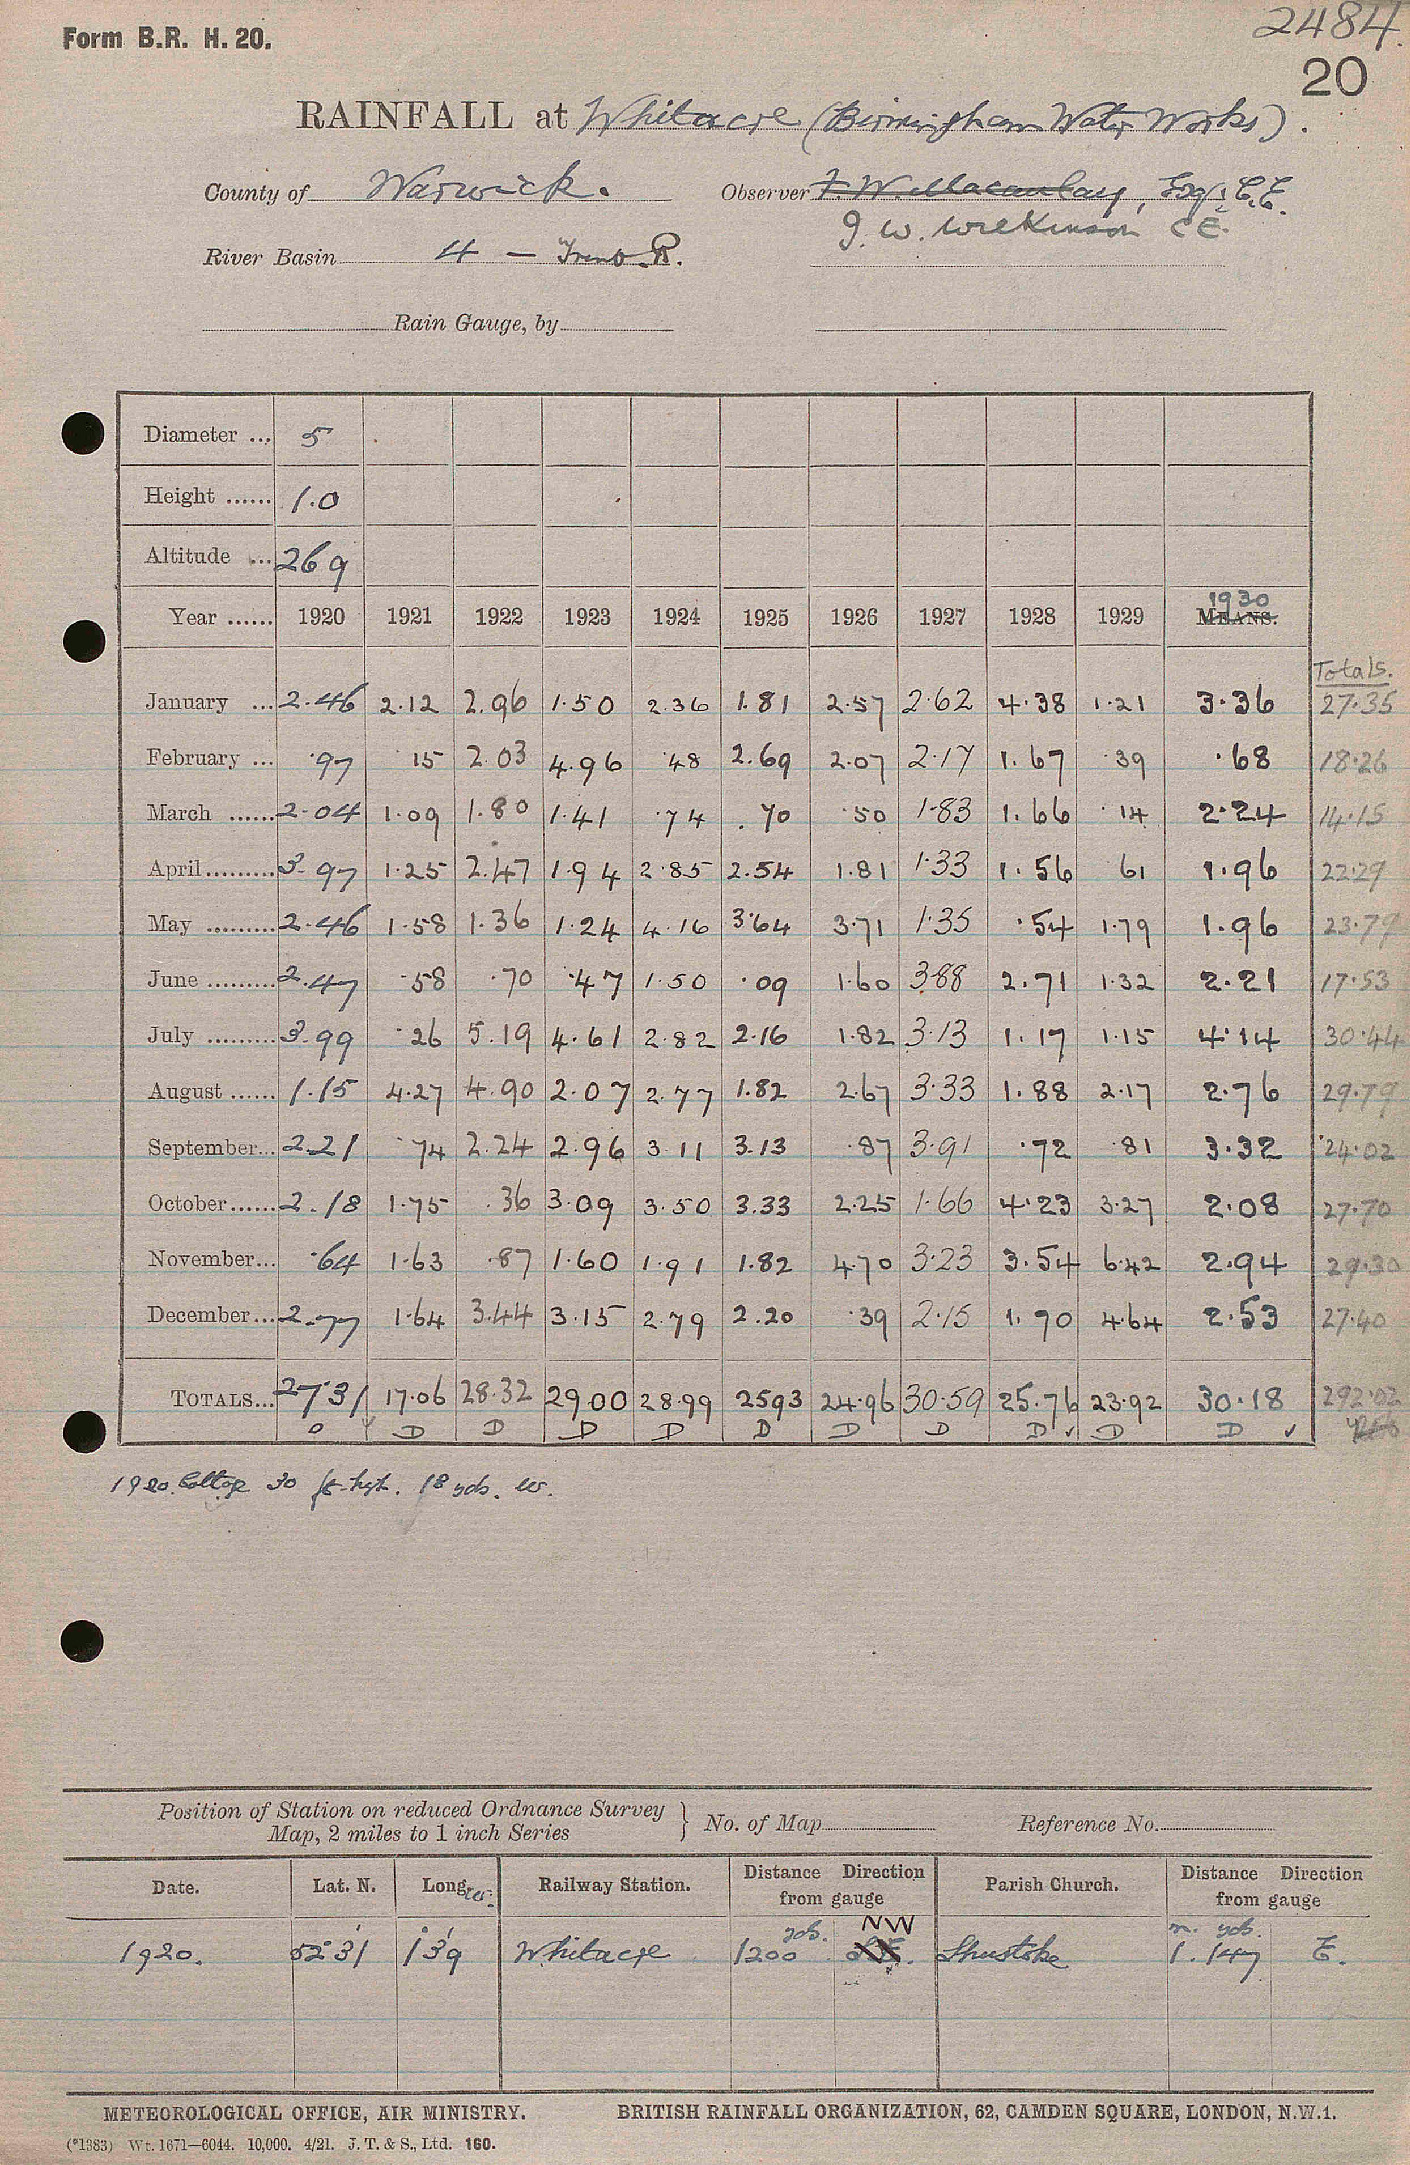 Form B.R. H. 20.
2484.
20
RAINFALL at Whitacre (Birmingham Water Works).
County of Warwick. Observer F. W. Macaulay, Esq; C.E.
J. W. Wilkinson CE.
River Basin 4 — Trent R.
Rain Gauge, by
Diameter ... 5
Height ...... 1.0
Altitude ... 269
Year ...... 1920 1921 1922 1923 1924 1925 1926 1927 1928 1929 MEANS. 1930
Totals.
January ... 2.46 2.12 2.96 1.50 2.36 1.81 2.57 2.62 4.38 1.21 3.36 27.35
February ... .97 15 2.03 4.96 .48 2.69 2.07 2.17 1.67 .39 .68 18.26
March ...... 2.04 1.09 1.80 1.41 .74 .70 .50 1.83 1.66 .14 2.24 14.15
April ......... 3.97 1.25 2.47 1.94 2.85 2.54 1.81 1.33 1.56 61 1.96 22.29
May ......... 2.46 1.58 1.36 1.24 4.16 3.64 3.71 1.35 .54 1.79 1.96 23.79
June ......... 2.47 .58 .70 .47 1.50 .09 1.60 3.88 2.71 1.32 2.21 17.53
July ......... 3.99 .26 5.19 4.61 2.82 2.16 1.82 3.13 1.17 1.15 4.14 30.44
August ...... 1.15 4.27 4.90 2.07 2.77 1.82 2.67 3.33 1.88 2.17 2.76 29.79
September... 2.21 .74 2.24 2.96 3.11 3.13 .87 3.91 .72 .81 3.32 24.02
October ...... 2.18 1.75 .36 3.09 3.50 3.33 2.25 1.66 4.23 3.27 2.08 27.70
November... .64 1.63 .87 1.60 1.91 1.82 4.70 3.23 3.54 6.42 2.94 29.30
December ... 2.77 1.64 3.44 3.15 2.79 2.20 .39 2.15 1.90 4.64 2.53 27.40
TOTALS... 27.31 17.06 28.32 29.00 28.99 25.93 24.96 30.59 25.76 23.92 30.18 292.02
D D D D D D D D D D
1920. Cottage 30 ft. high. 18 yds. W.
Position of Station on reduced Ordnance Survey Map, 2 miles to 1 inch Series } No. of Map Reference No.
Date. Lat. N. Long W. Railway Station. Distance Direction from gauge Parish Church. Distance Direction from gauge
yds. NW m. yds.
1920. 52°31' 1°39' Whitacre 1200 Shustoke 1. 147 E.
METEOROLOGICAL OFFICE, AIR MINISTRY. BRITISH RAINFALL ORGANIZATION, 62, CAMDEN SQUARE, LONDON, N.W.1.
(*1383) Wt. 1671—6044. 10,000. 4/21. J. T. & S., Ltd. 160.